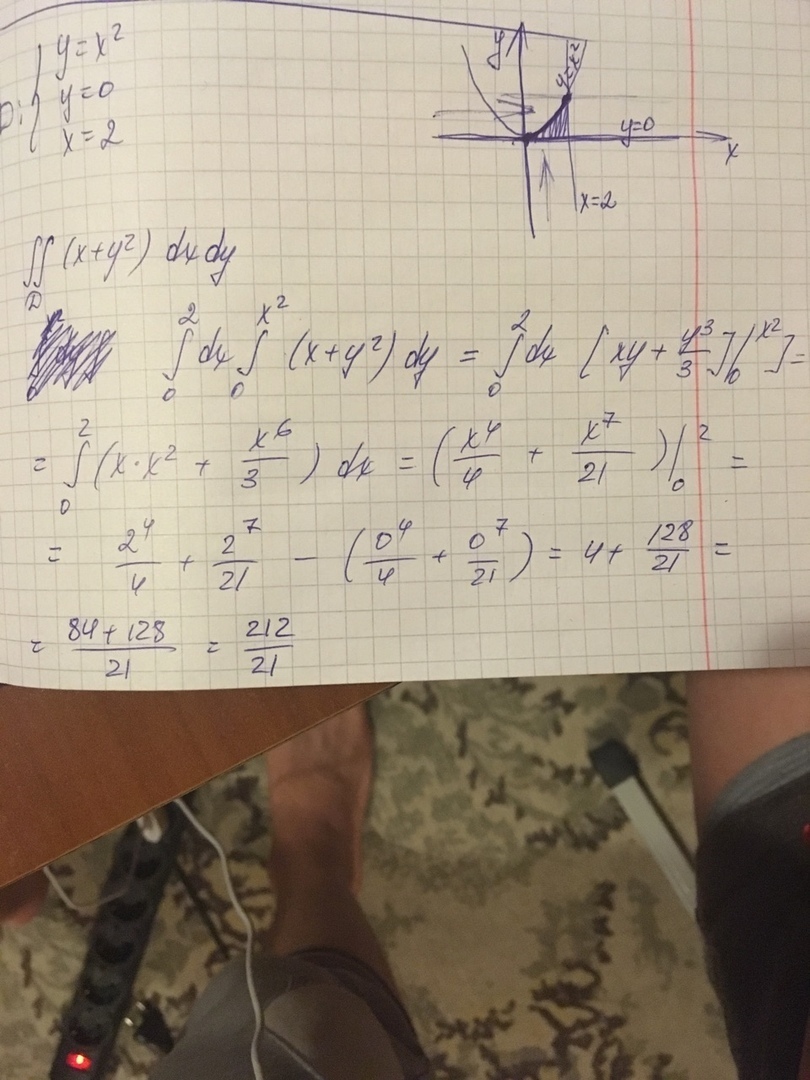 D: { y = x²
y = 0
x = 2
y
y = x²
y=0
x
x=2
∬ (x+y²) dx dy
D
∫₀² dx ∫₀^(x²) (x+y²) dy = ∫₀² dx [xy + y³/3]|₀^(x²)] =
= ∫₀² (x·x² + x⁶/3) dx = (x⁴/4 + x⁷/21)|₀² =
= 2⁴/4 + 2⁷/21 − (0⁴/4 + 0⁷/21) = 4 + 128/21 =
= (84+128)/21 = 212/21